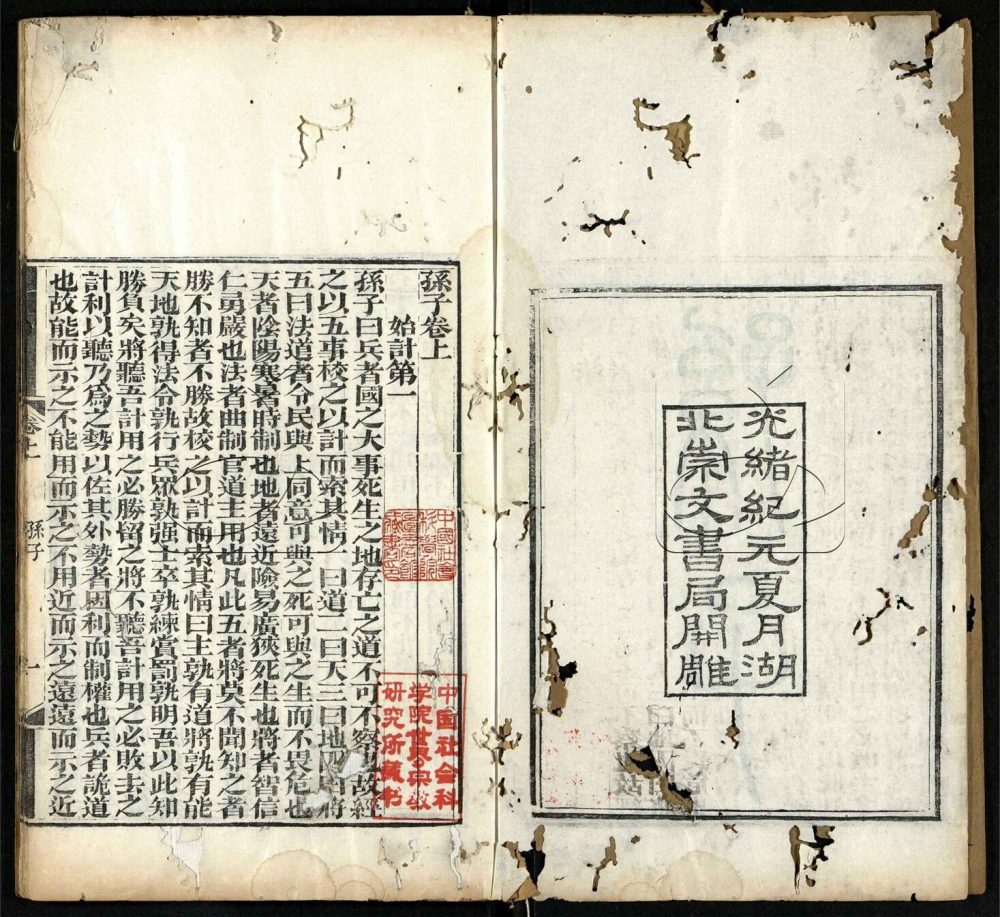 光緒紀元夏月湖
北崇文書局開雕
孫子卷上
始計第一
孫子曰兵者國之大事死生之地存亡之道不可不察也故經
之以五事校之以計而索其情一曰道二曰天三曰地四曰將
五曰法道者令民與上同意可與之死可與之生而不畏危也
天者陰陽寒暑時制也地者遠近險易廣狹死生也將者智信
仁勇嚴也法者曲制官道主用也凡此五者將莫不聞知之者
勝不知者不勝故校之以計而索其情曰主孰有道將孰有能
天地孰得法令孰行兵眾孰强士卒孰練賞罰孰明吾以此知
勝負矣將聽吾計用之必勝留之將不聽吾計用之必敗去之
計利以聽乃爲之勢以佐其外勢者因利而制權也兵者詭道
也故能而示之不能用而示之不用近而示之遠遠而示之近
卷上
孫子
一
中國社會
科學院
中国社会科
学院世界宗教
研究所藏书